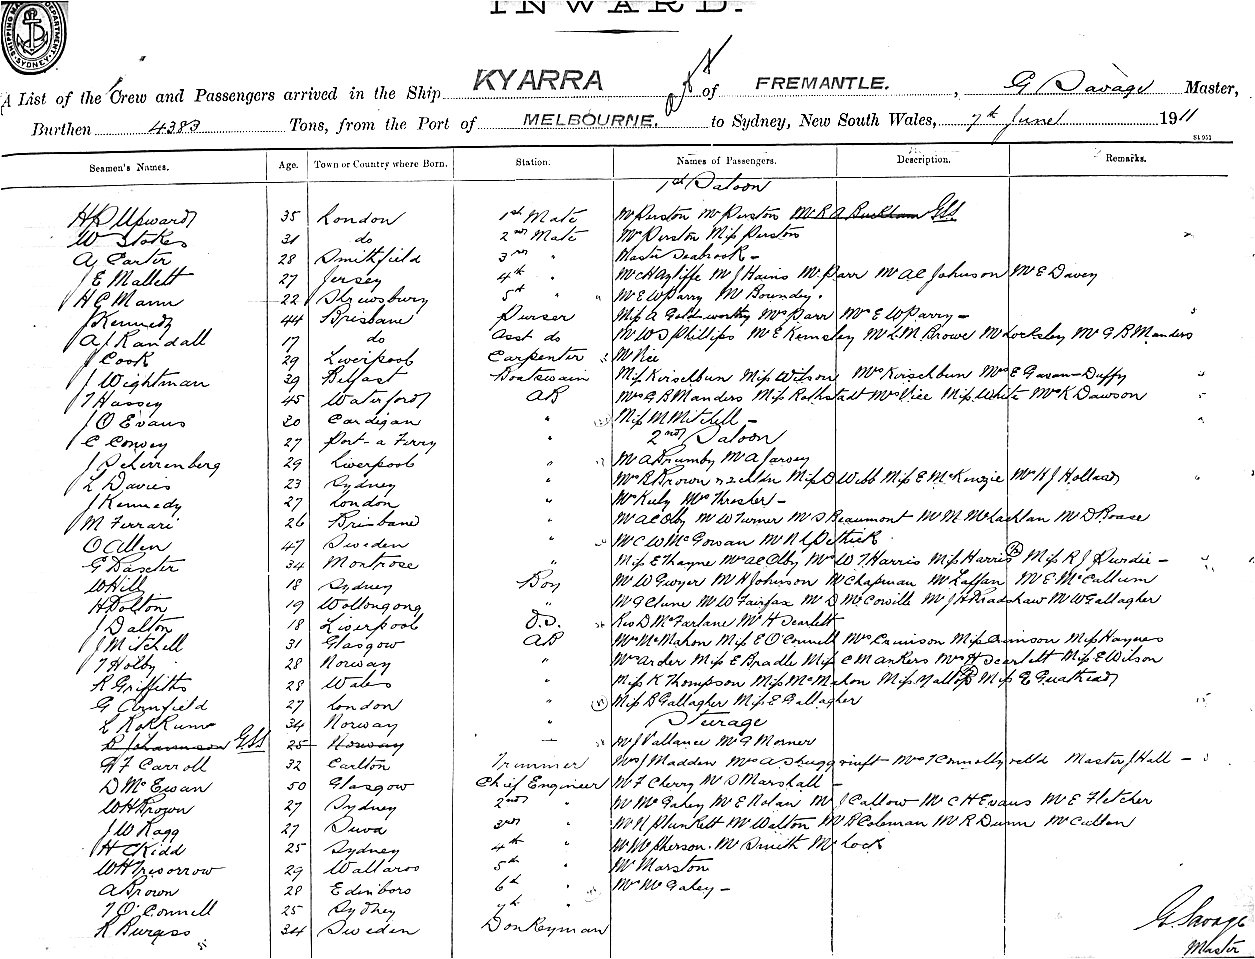 INWARD.
SHIPPING MA DEPARTMENT SYDNEY
A List of the Crew and Passengers arrived in the Ship KYARRA of FREMANTLE. , G Savage Master,
Burthen 4383 Tons, from the Port of MELBOURNE. to Sydney, New South Wales, 7th June 1911
Seamen's Names. Age. Town or Country where Born. Station. Names of Passengers. Description. Remarks.
1st Saloon
H D Upward 35 London 1st Mate Mr Purston Mr Purston Mr R A Buckham GSS
W Stokes 31 do 2nd Mate Mr Purston Miss Purston
A Carter 28 Smithfield 3rd " Master Seabrook -
J E Mallett 27 Jersey 4th " Mr H Ayliffe Mr J Hains Mr Parr Mr A C Johnson Mr E Davey
H C Mann 22 Shrewsbury 5th " Mr E W Parry Mr Boundey.
J Kennedy 44 Brisbane Purser Miss A Goldsworthy Mrs Parr Mrs E W Parry -
A J Randall 17 do Asst do Mr W S Phillips Mr E Kemsley Mr L M Browe Mr Locksley Mr G B Manders
J Cook 29 Liverpool Carpenter Mr Vice
J Wightman 39 Belfast Boatswain Miss Kirschbun Miss Wilson Mrs Kirschbun Mrs E Gavan-Duffy
T Hassey 45 Waterford AB Mrs G B Manders Miss Rothstadt Mrs Vice Miss White Mrs K Dawson
J O Evans 20 Cardigan " Miss M Mitchell -
C Convey 27 Port-a Ferry " 2nd Saloon
J Scherrenberg 29 Liverpool " Mr A Brumby Mr A Jarvey
L Davies 23 Sydney " Mrs R Brown & 2 chldn Miss D Webb Miss E McKenzie Mrs H J Holland
J Kennedy 27 London " Mrs Kuly Mrs Throsler -
M Ferrari 26 Brisbane " Mr A C Olby Mr W Turner Mr S Beaumont Mr M McLachlan Mr D Roase
O Allen 47 Sweden " Mr C W McGowan Mr R L Pettrick
G Baxter 34 Montrose " Miss E Thayne Mrs A C Olby Mrs W T Harris Miss Harris Miss R J Purdie -
W Hill 18 Sydney Boy Mr W Gwyer Mr H Johnson Mr Chapman Mr Laffan Mr E McCallum
H Dolton 19 Wollongong " Mr G Clune Mr W Fairfax Mr D McCorville Mr J H Bradshaw Mr W Gallagher
J Dalton 18 Liverpool O.S. Rev D McFarlane Mr H Scarlett
J Mitchell 31 Glasgow AB Mrs McMahon Miss E O'Connell Mrs Lamison Miss Haynes
T Holby 28 Norway " Mrs Arder Miss E Bradle Miss C Mankers Mrs H Scarlett Miss E Wilson
R Griffiths 28 Wales " Miss K Thompson Miss McMahon Miss Yallop Miss E Guathead
G Cornfield 27 London " Miss B Gallagher Miss E Gallagher
L Rokkum 34 Norway " Steerage
Johannson GSS 25 Norway - Mr J Vallance Mr G Morner
G F Carroll 32 Carlton Trimmer Mrs J Madden Mrs A Shuggrouft Mrs T Connolly Master J Hall -
D McEwan 50 Glasgow Chief Engineer Mr F Cherry Mr S Marshall -
W H Brown 27 Sydney 2nd " Mr McGaley Mr E Nolan Mr J Callow Mr C H Evans Mr E Fletcher
J W Ragg 27 Suva 3rd " Mr N Plunkett Mr Walton Mr B Coleman Mr R Dunn Mr Cullen
H C Kidd 25 Sydney 4th " Mr McPherson. Mr Smith Mr Lock
W H Tresorrow 29 Wallaroo 5th " Mr Marston
A Brown 28 Edinboro 6th " Mrs McGaley -
T O'Connell 25 Sydney 7th "
R Burgess 34 Sweden Donkeyman
G Savage
Master